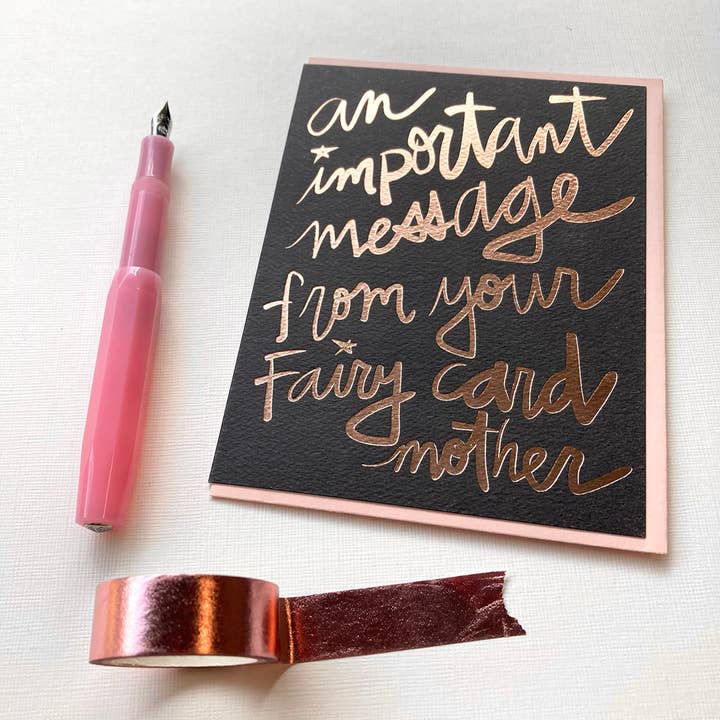 an
important
message
from your
Fairy card
mother